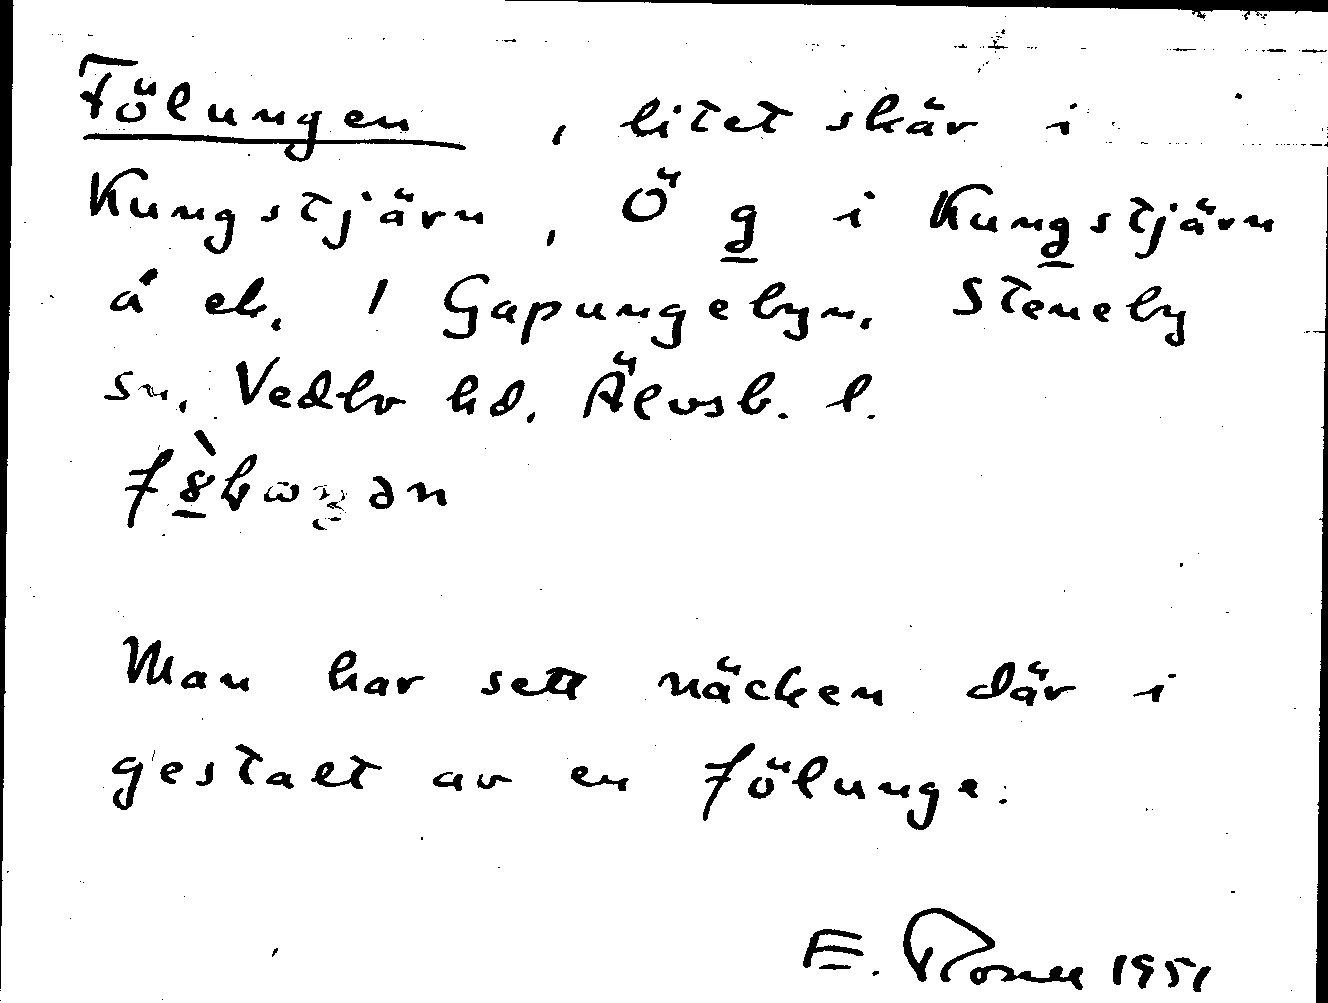 Fölungen, litet skär i
Kungstjärn, Ö g i Kungstjärn
å ek. 1 Gapungebyn. Steneby
sn. Vedbo hd. Älvsb. l.
Man har sett näcken där i
gestalt av en fölunge.
E. 1951